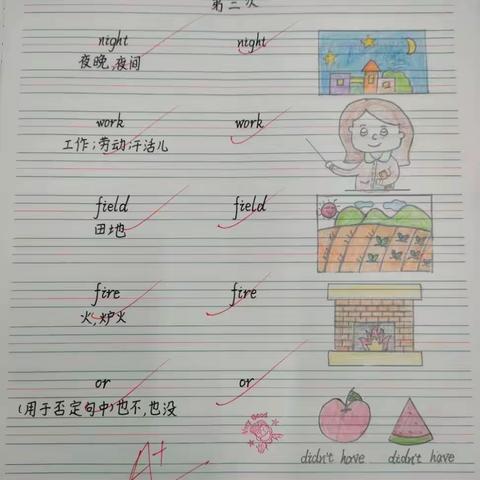 第三次
night night
夜晚,夜间
work work
工作;劳动;干活儿
field field
田地
fire fire
火,炉火
or or
(用于否定句中)也不,也没
Very Good
A+
didn't have didn't have